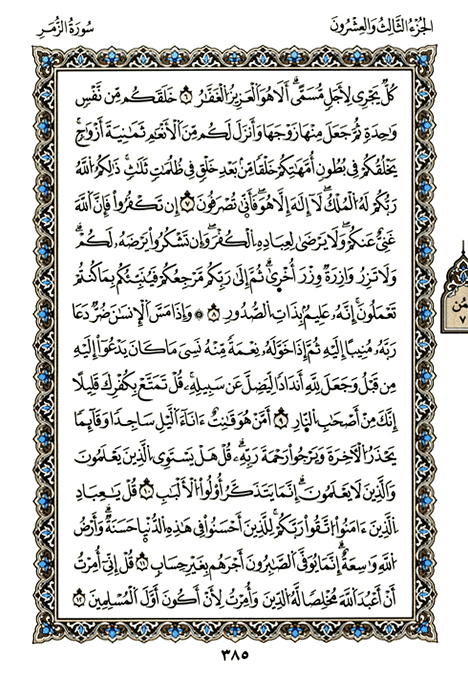 الجُزْءُ الثَّالِثُ وَالعِشْرُونَ
سُورَةُ الزُّمَرِ
كُلٌّ يَجْرِى لِأَجَلٍ مُّسَمًّى أَلَا هُوَ الْعَزِيزُ الْغَفَّٰرُ ٦ خَلَقَكُم مِّن نَّفْسٍ
وَٰحِدَةٍ ثُمَّ جَعَلَ مِنْهَا زَوْجَهَا وَأَنزَلَ لَكُم مِّنَ الْأَنْعَٰمِ ثَمَٰنِيَةَ أَزْوَٰجٍ
يَخْلُقُكُمْ فِى بُطُونِ أُمَّهَٰتِكُمْ خَلْقًا مِّنۢ بَعْدِ خَلْقٍ فِى ظُلُمَٰتٍ ثَلَٰثٍ ذَٰلِكُمُ اللَّهُ
رَبُّكُمْ لَهُ الْمُلْكُ لَآ إِلَٰهَ إِلَّا هُوَ فَأَنَّىٰ تُصْرَفُونَ ٧ إِن تَكْفُرُوا۟ فَإِنَّ اللَّهَ
غَنِىٌّ عَنكُمْ وَلَا يَرْضَىٰ لِعِبَادِهِ الْكُفْرَ وَإِن تَشْكُرُوا۟ يَرْضَهُ لَكُمْ
وَلَا تَزِرُ وَازِرَةٌ وِزْرَ أُخْرَىٰ ثُمَّ إِلَىٰ رَبِّكُم مَّرْجِعُكُمْ فَيُنَبِّئُكُم بِمَا كُنتُمْ
تَعْمَلُونَ إِنَّهُ عَلِيمٌۢ بِذَاتِ الصُّدُورِ ٨ ۞ وَإِذَا مَسَّ الْإِنسَٰنَ ضُرٌّ دَعَا
رَبَّهُ مُنِيبًا إِلَيْهِ ثُمَّ إِذَا خَوَّلَهُ نِعْمَةً مِّنْهُ نَسِىَ مَا كَانَ يَدْعُوٓا۟ إِلَيْهِ
مِن قَبْلُ وَجَعَلَ لِلَّهِ أَندَادًا لِّيَضِلَّ عَن سَبِيلِهِ قُلْ تَمَتَّعْ بِكُفْرِكَ قَلِيلًا
إِنَّكَ مِنْ أَصْحَٰبِ النَّارِ ٩ أَمَّنْ هُوَ قَٰنِتٌ ءَانَآءَ الَّيْلِ سَاجِدًا وَقَآئِمًا
يَحْذَرُ الْءَاخِرَةَ وَيَرْجُوا۟ رَحْمَةَ رَبِّهِ قُلْ هَلْ يَسْتَوِى الَّذِينَ يَعْلَمُونَ
وَالَّذِينَ لَا يَعْلَمُونَ إِنَّمَا يَتَذَكَّرُ أُو۟لُوا۟ الْأَلْبَٰبِ ١٠ قُلْ يَٰعِبَادِ
الَّذِينَ ءَامَنُوا۟ اتَّقُوا۟ رَبَّكُمْ لِلَّذِينَ أَحْسَنُوا۟ فِى هَٰذِهِ الدُّنْيَا حَسَنَةٌ وَأَرْضُ
اللَّهِ وَٰسِعَةٌ إِنَّمَا يُوَفَّى الصَّٰبِرُونَ أَجْرَهُم بِغَيْرِ حِسَابٍ ١١ قُلْ إِنِّى أُمِرْتُ
أَنْ أَعْبُدَ اللَّهَ مُخْلِصًا لَّهُ الدِّينَ وَأُمِرْتُ لِأَنْ أَكُونَ أَوَّلَ الْمُسْلِمِينَ ١٢
٣٨٥